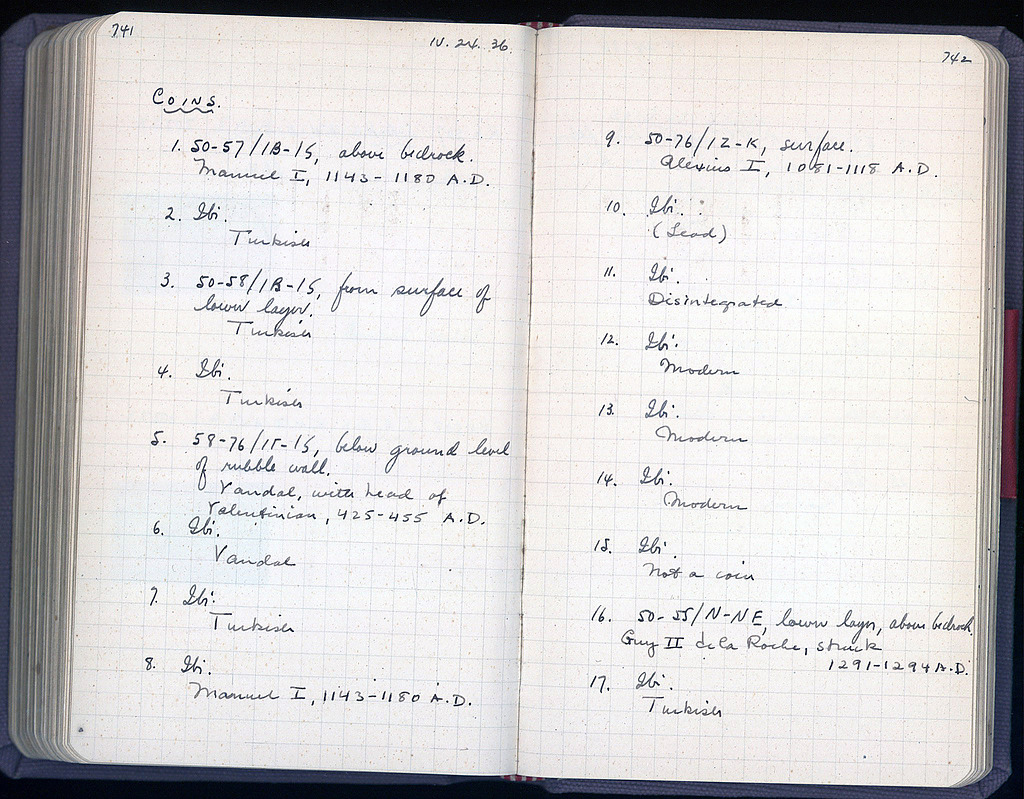 741
IV. 24. 36
COINS.
1. 50-57/1B-15, above bedrock.
Manuel I, 1143-1180 A.D.
2. Ibi.
Turkish
3. 50-58/1B-15, from surface of
lower layer.
Turkish
4. Ibi.
Turkish
5. 58-76/ΙΓ-15, below ground level
of rubble wall.
Vandal, with head of
Valentinian, 425-455 A.D.
6. Ibi.
Vandal
7. Ibi.
Turkish
8. Ibi.
Manuel I, 1143-1180 A.D.
742
9. 50-76/12-K, surface.
Alexius I, 1081-1118 A.D.
10. Ibi.
(Lead)
11. Ibi.
Disintegrated
12. Ibi.
Modern
13. Ibi.
Modern
14. Ibi.
Modern
15. Ibi.
Not a coin
16. 50-55/N-NE, lower layer, above bedrock.
Guy II de la Roche, struck
1291-1294 A.D.
17. Ibi.
Turkish